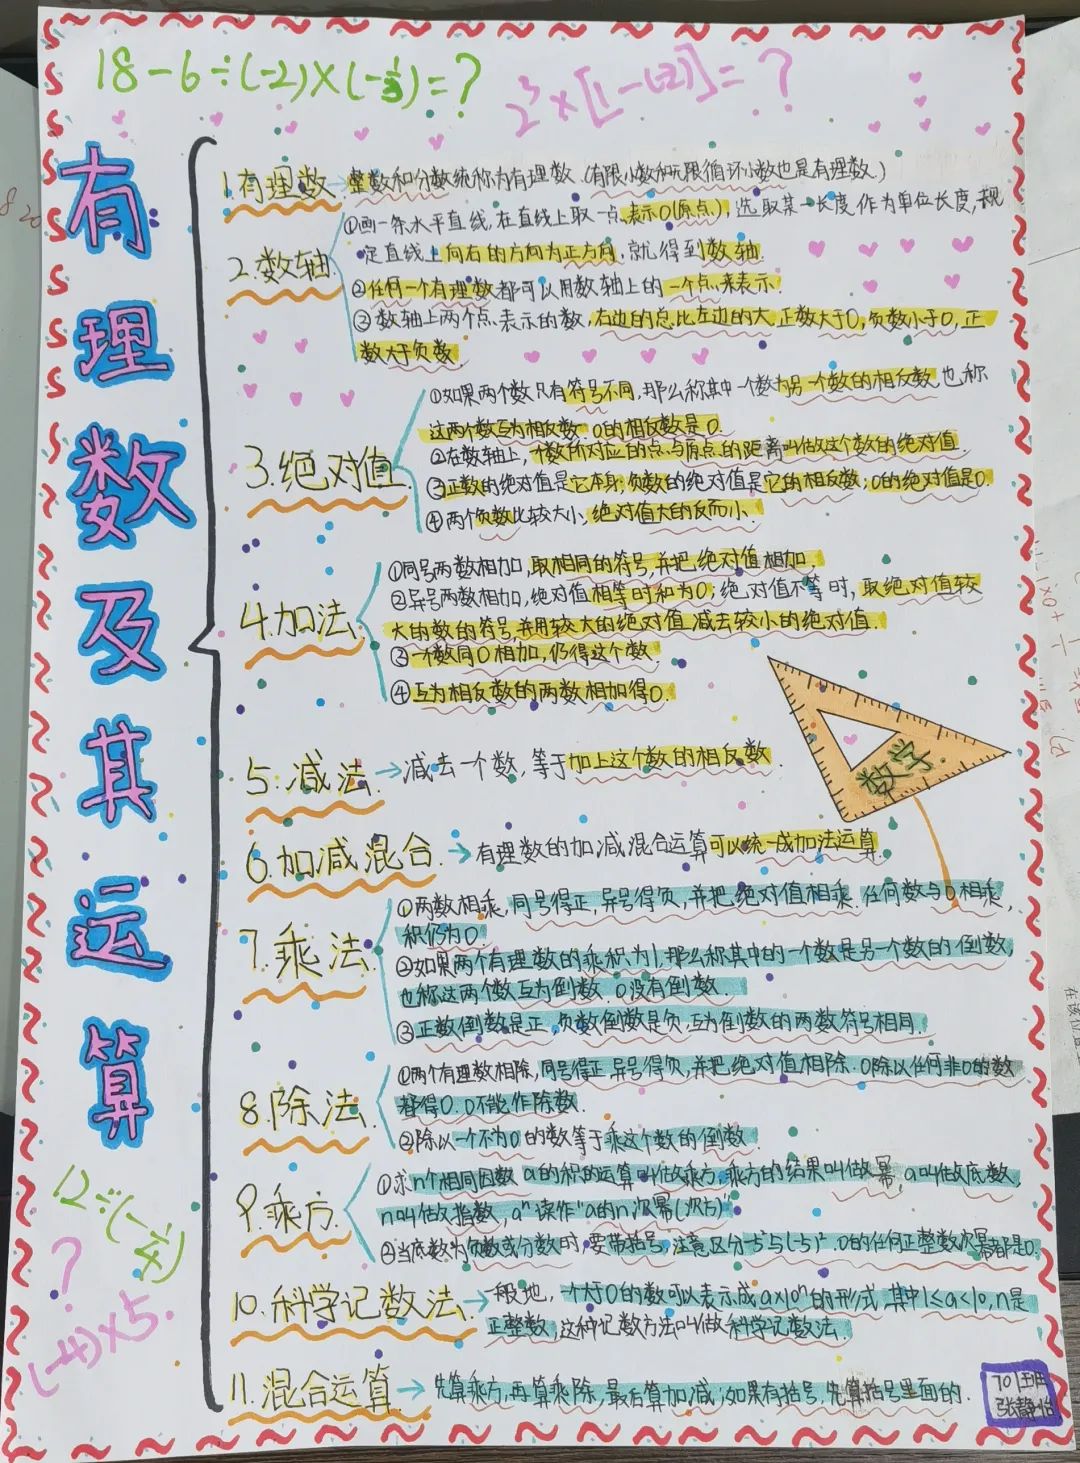 18-6÷(-2)×(-1/3)=?
2³×[1-(-2)]=?
有理数及其运算
1.有理数→整数和分数统称为有理数.(有限小数和无限循环小数也是有理数.)
2.数轴
①画一条水平直线,在直线上取一点表示0(原点),选取某一长度作为单位长度,规
定直线上向右的方向为正方向,就得到数轴.
②任何一个有理数都可以用数轴上的一个点来表示.
③数轴上两个点表示的数,右边的总比左边的大.正数大于0,负数小于0,正
数大于负数.
3.绝对值
①如果两个数只有符号不同,那么称其中一个数为另一个数的相反数,也称
这两个数互为相反数.0的相反数是0.
②在数轴上,一个数所对应的点与原点的距离叫做这个数的绝对值.
③正数的绝对值是它本身;负数的绝对值是它的相反数;0的绝对值是0.
④两个负数比较大小,绝对值大的反而小.
4.加法
①同号两数相加,取相同的符号,并把绝对值相加.
②异号两数相加,绝对值相等时和为0;绝对值不等时,取绝对值较
大的数的符号,并用较大的绝对值减去较小的绝对值.
③一个数同0相加,仍得这个数.
④互为相反数的两数相加得0.
5.减法→减去一个数,等于加上这个数的相反数.
数学.
6.加减混合.→有理数的加减混合运算可以统一成加法运算.
7.乘法
①两数相乘,同号得正,异号得负,并把绝对值相乘.任何数与0相乘,
积仍为0.
②如果两个有理数的乘积为1,那么称其中的一个数是另一个数的倒数,
也称这两个数互为倒数.0没有倒数.
③正数倒数是正,负数倒数是负,互为倒数的两数符号相同.
8.除法
①两个有理数相除,同号得正,异号得负,并把绝对值相除.0除以任何非0的数
都得0.0不能作除数.
②除以一个不为0的数等于乘这个数的倒数.
9.乘方.
①求n个相同因数a的积的运算叫做乘方,乘方的结果叫做幂,a叫做底数,
n叫做指数,aⁿ读作"a的n次幂(次方)"
②当底数为负数或分数时,要带括号,注意区分-5²与(-5)².0的任何正整数次幂都是0.
10.科学记数法→一般地,一个大于0的数可以表示成a×10ⁿ的形式,其中1≤a<10,n是
正整数,这种记数方法叫做科学记数法.
11.混合运算→先算乘方,再算乘除,最后算加减;如果有括号,先算括号里面的.
12÷(-1/4)
?
(-4)×5.
701班
张静怡